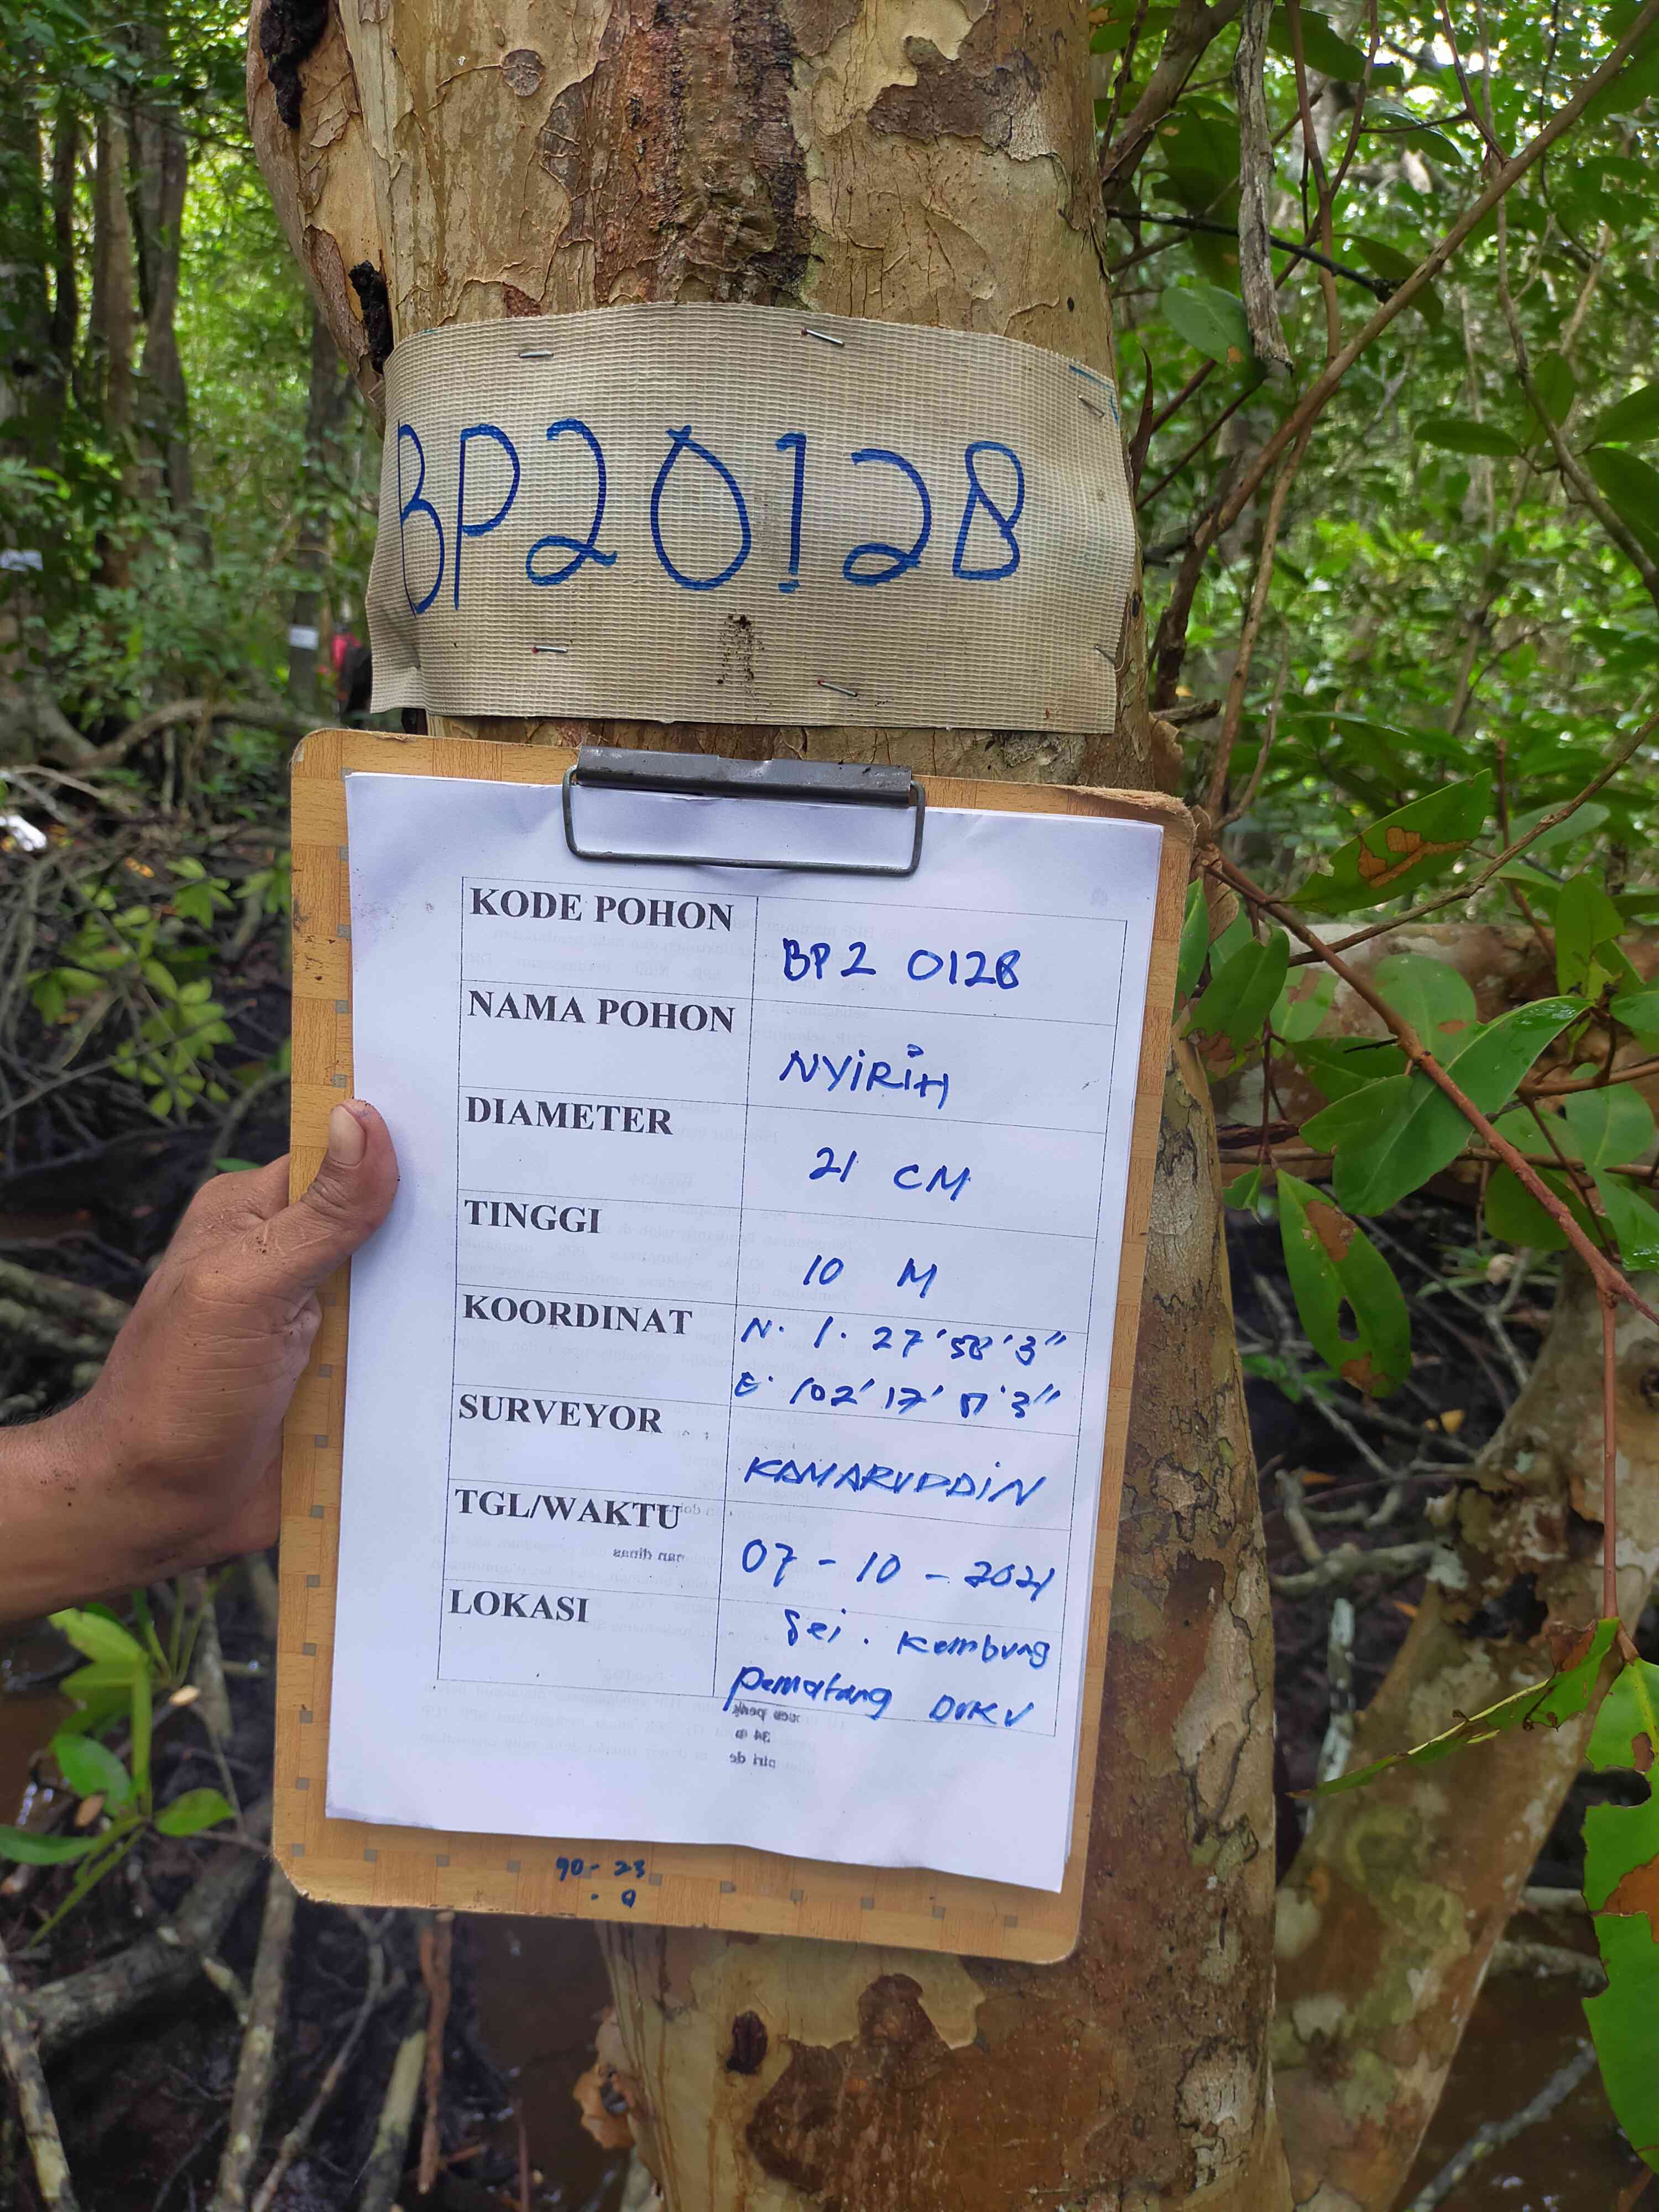 BP20128
KODE POHON
BP2 0128
NAMA POHON
NYiRiH
DIAMETER
21 CM
TINGGI
10 M
KOORDINAT
N. 1. 27' 58' 3"
E. 102' 17'
SURVEYOR
KAMARUDDiN
TGL/WAKTU
07-10-2021
LOKASI
Sei. Kembung
Pematang DUKU
90-23